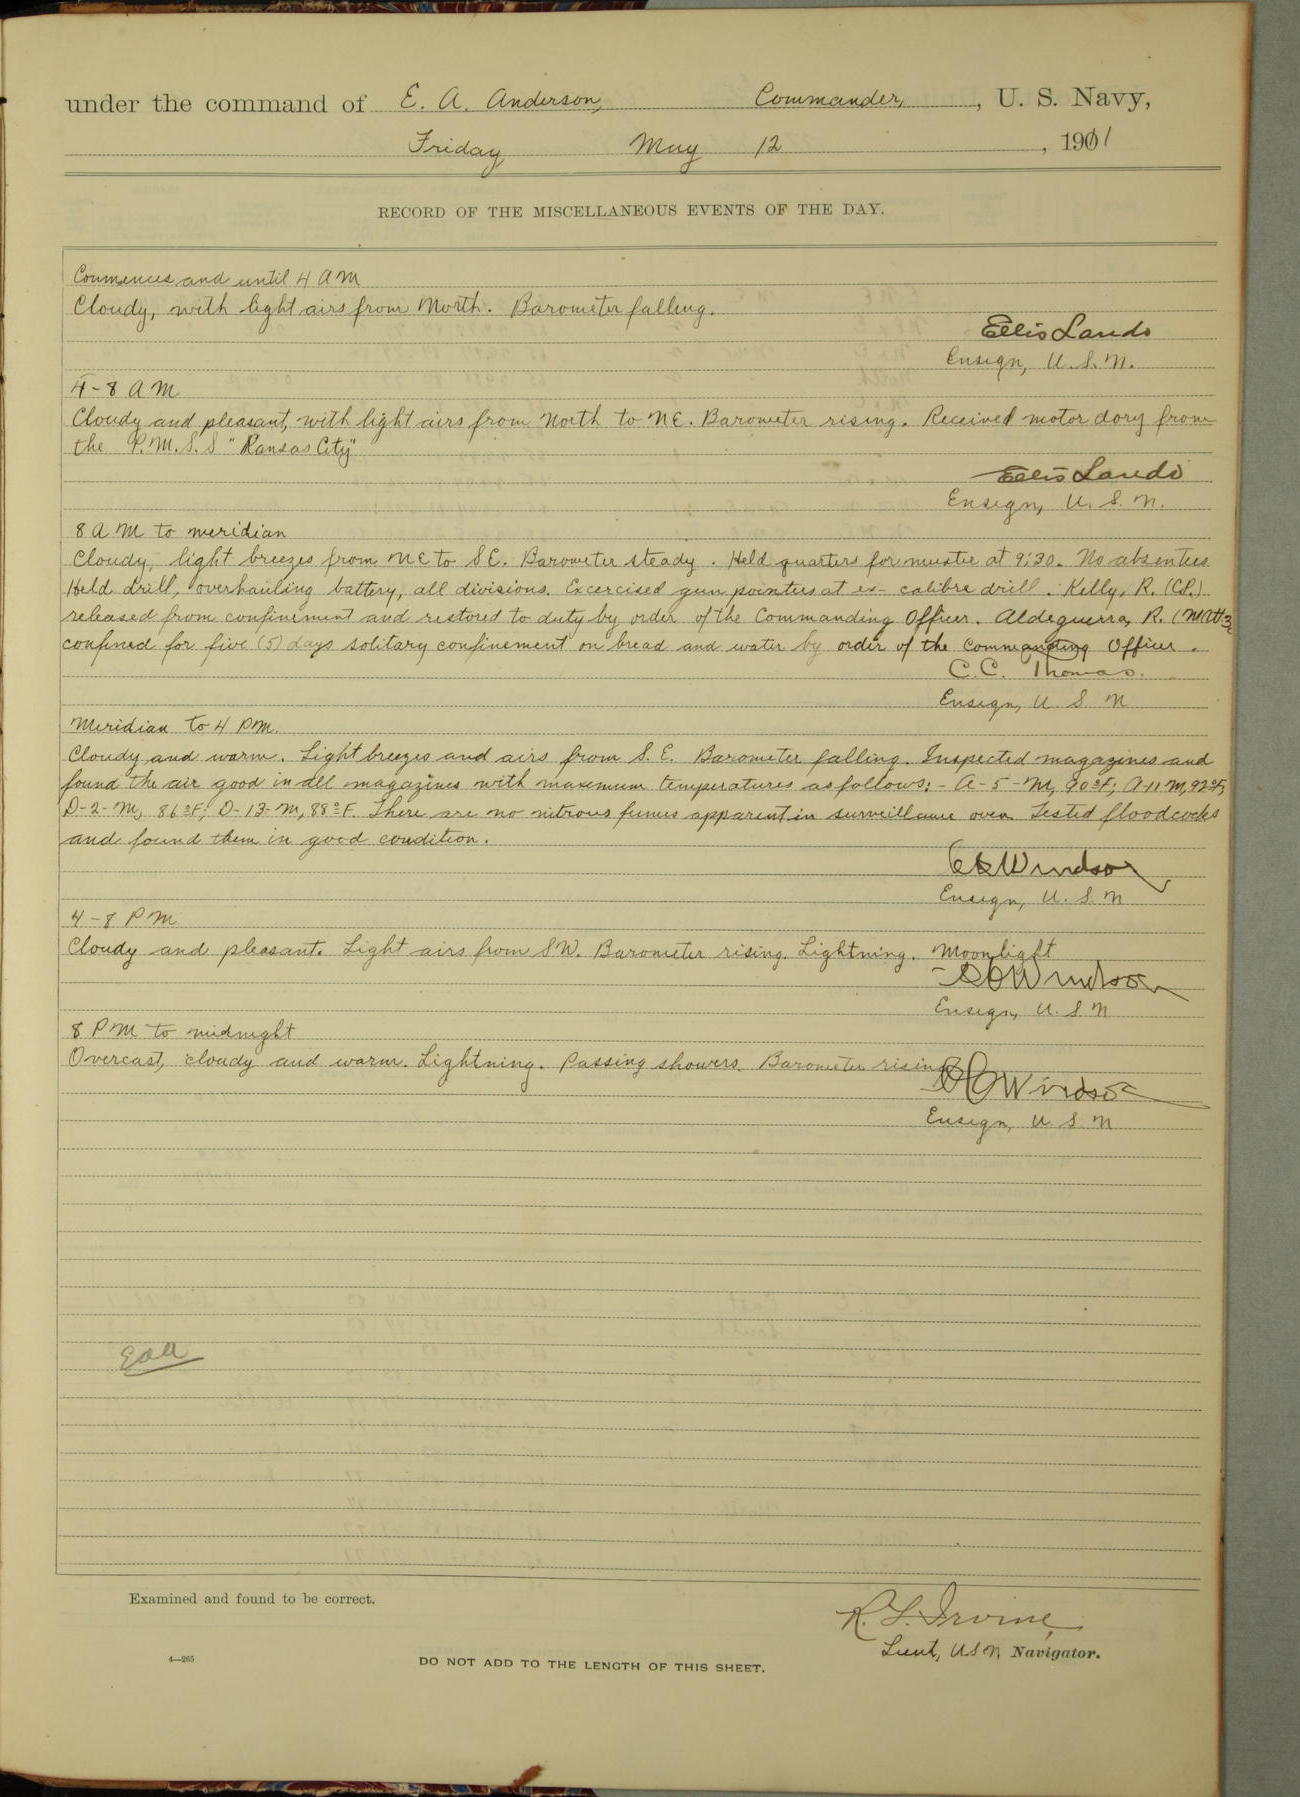 under the command of E. A. Anderson, Commander, , U. S. Navy,
Friday May 12 , 1911
RECORD OF THE MISCELLANEOUS EVENTS OF THE DAY.
Commences and until 4 A M
Cloudy, with light airs from North. Barometer falling.
Ellis Lando
Ensign, U. S. N.
4-8 A M
Cloudy and pleasant, with light airs from North to NE. Barometer rising. Received motor dory from
the P.M.S.S "Kansas City"
Ellis Lando
Ensign, U. S. N.
8 A M to meridian
Cloudy, light breezes from NE to SE. Barometer steady. Held quarters for muster at 9:30. No absentees.
Held drill, overhauling battery, all divisions. Excercised gun pointers at ex-calibre drill. Kelly, R. (CP.)
released from confinement and restored to duty by order of the Commanding Officer. Aldeguerra, R. (MAtt3c
confined for five (5) days solitary confinement on bread and water by order of the Commanding Officer.
C. C. Thomas.
Ensign, U S N
Meridian to 4 P.M.
Cloudy and warm. Light breezes and airs from S. E. Barometer falling. Inspected magazines and
found the air good in all magazines with maximum temperatures as follows:- A-5-M, 90°F; A-11-M, 92°F;
D-2-M, 86°F; D-13-M, 88°F. There are no nitrous fumes apparent in surveillance oven. Tested floodcocks
and found them in good condition.
Windsor
Ensign, U. S. N
4-8 P M
Cloudy and pleasant. Light airs from SW. Barometer rising. Lightning. Moonlight
Windsor
Ensign, U. S. N
8 P M to midnight
Overcast, cloudy and warm. Lightning. Passing showers. Barometer rising
Windsor
Ensign, U. S. N
EAA
Examined and found to be correct.
R. L. Irvine,
Lieut, USN, Navigator.
4—265
DO NOT ADD TO THE LENGTH OF THIS SHEET.